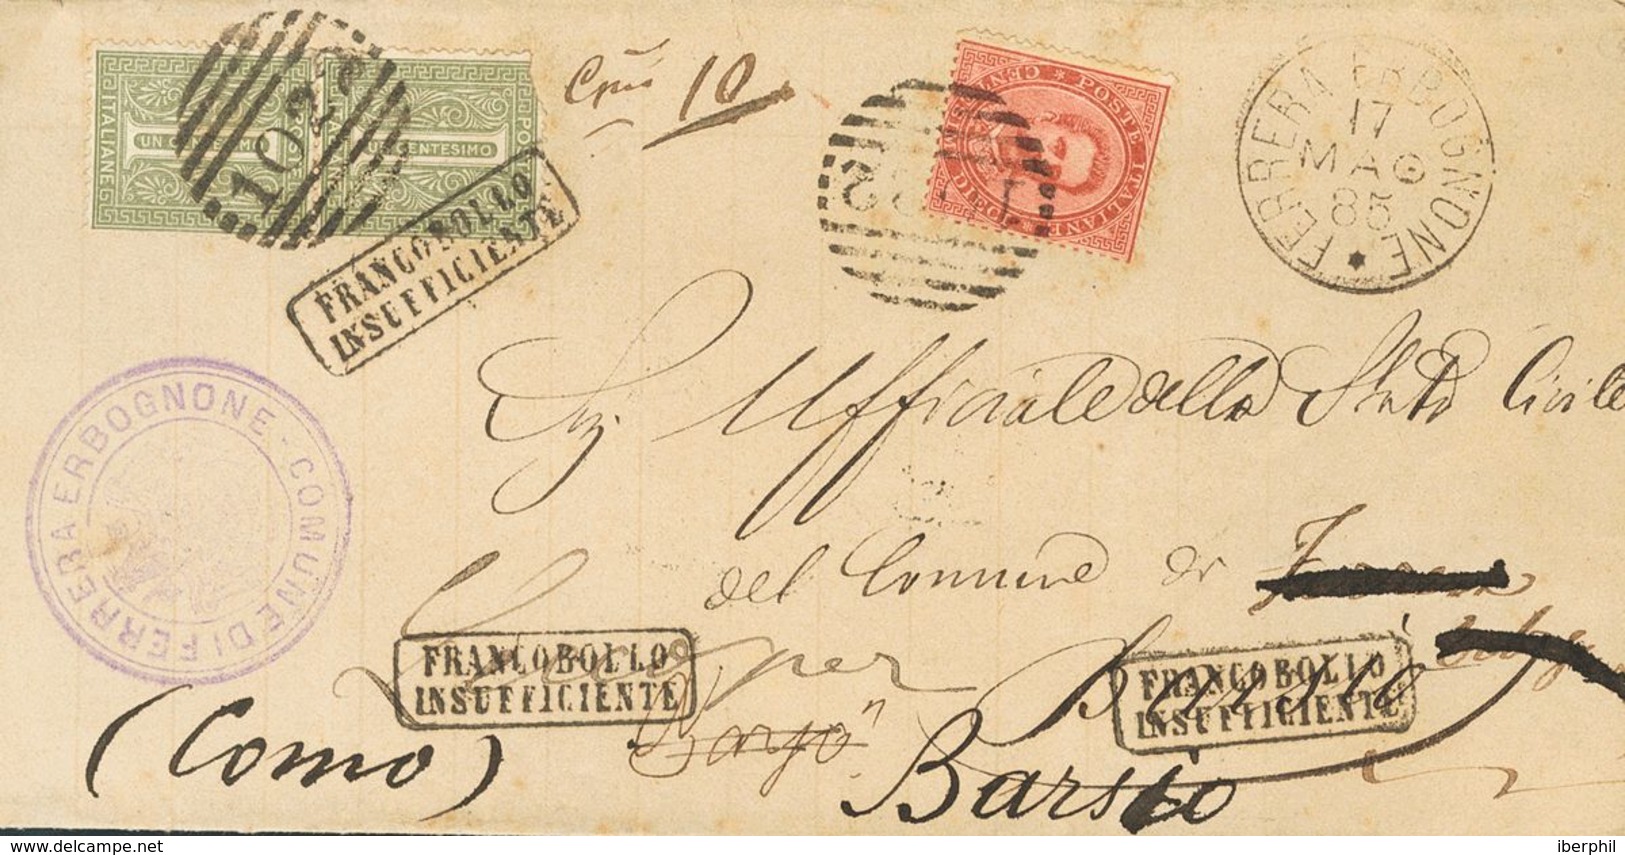 ITALIANE
UN CENTESIMO
UN CENTESIMO
1023
10
POSTE ITALIANE
CENT.
DIECI
FERRERA ERBOGNONE
17
MAG
85
FRANCOBOLLO
INSUFFICIENTE
COMUNE DI FERRERA ERBOGNONE
Sig. Ufficiale dello Stato Civile
del Comune di
per
FRANCOBOLLO
INSUFFICIENTE
FRANCOBOLLO
INSUFFICIENTE
(Como)
Barsio
iberphil
www.delcampe.net